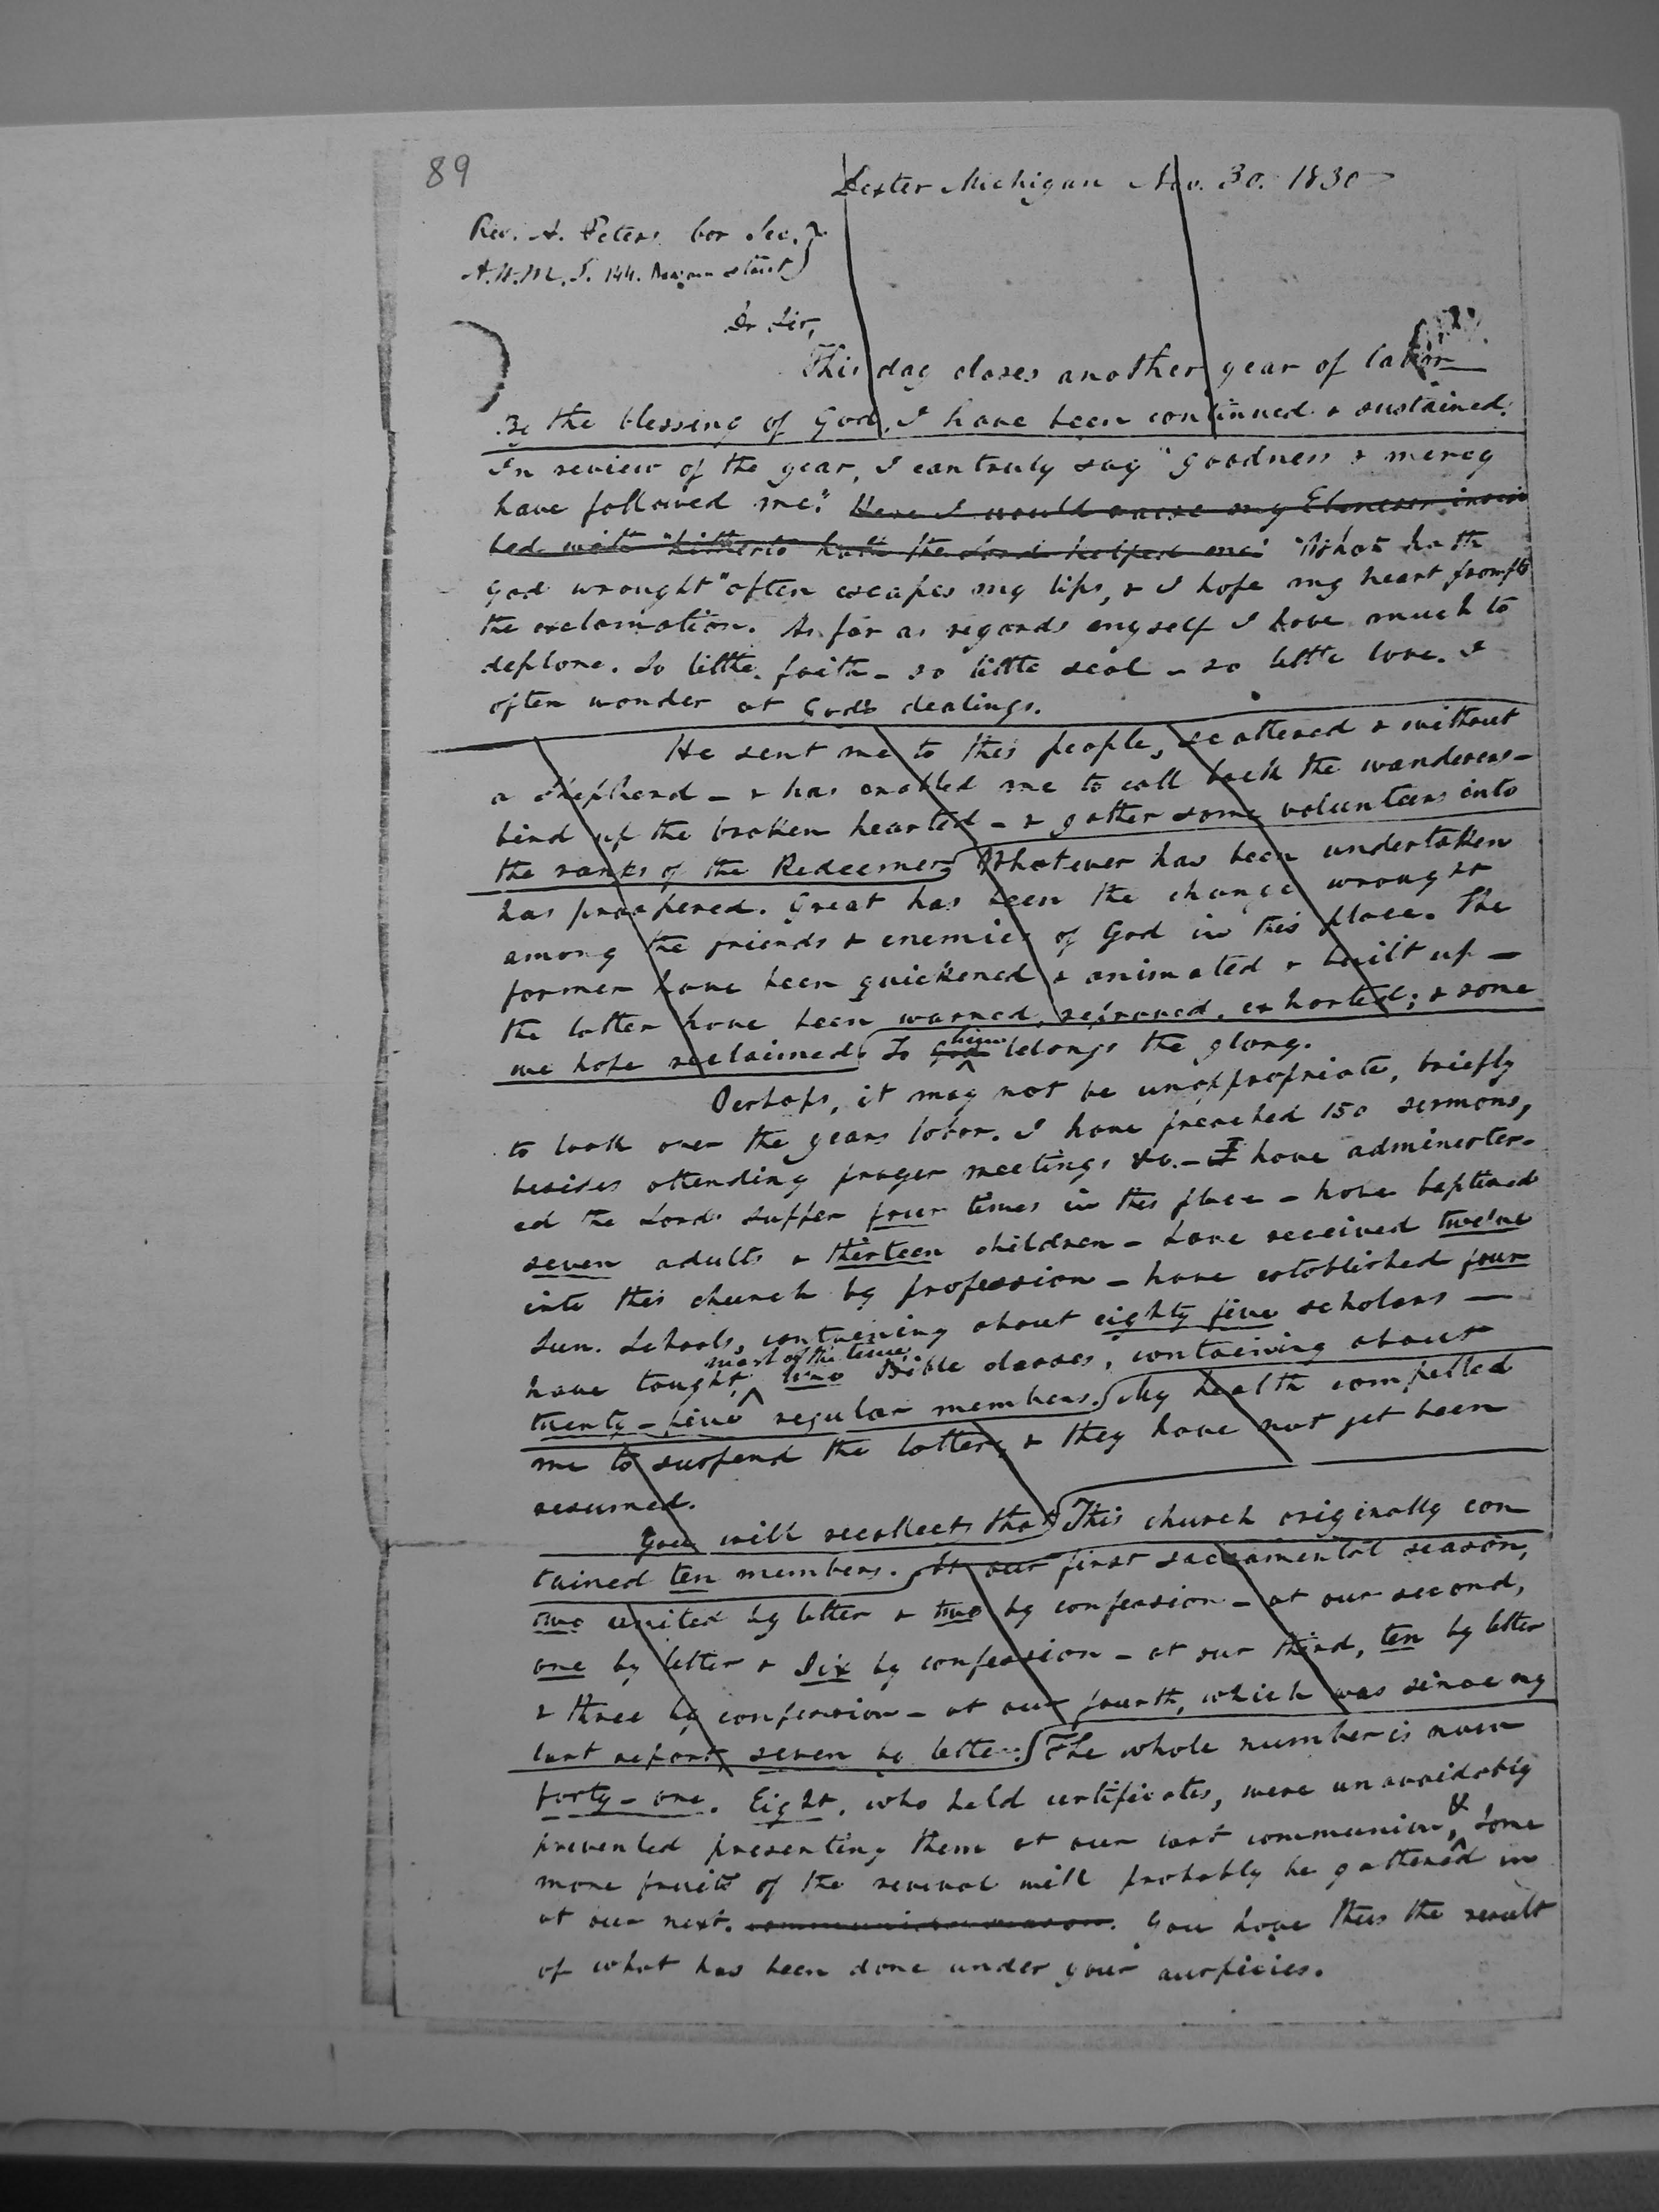 89
Dexter Michigan Nov. 30. 1830
Rev. A. Peters. Cor Sec.
A.H.M.S. 144. Nassau street
Dr Sir,
This day closes another year of labor
By the blessing of God, I have been continued & sustained.
In review of the year, I can truly say "goodness & mercy
have followed me." Here I would raise my Ebenezer inscri
bed with "hitherto hath the Lord helped me." "What hath
God wrought" often escapes my lips, & I hope my heart prompts
the exclamation. As far as regards myself I have much to
deplore. So little faith - so little zeal - so little love. I
often wonder at God's dealings.
He sent me to this people, scattered & without
a shepherd - & has enabled me to call back the wanderers -
bind up the broken hearted - & gather some volunteers into
the ranks of the Redeemer. Whatever has been undertaken
has prospered. Great has been the change wrought
among the friends & enemies of God in this place. The
former have been quickened & animated & built up -
the latter have been warned, reproved, exhorted; & some
we hope reclaimed. To God him belongs the glory.
Perhaps, it may not be unappropriate, briefly
to look over the years labor. I have preached 150 sermons,
besides attending prayer meetings &c. - I have administer-
ed the Lords supper four times in this place - have baptized
seven adults & thirteen children - have received twelve
into this church by profession - have established four
Sun. Schools, containing about eighty five scholars -
have taught, most of the time, two Bible classes, containing about
twenty-five regular members. My health compelled
me to suspend the latter, & they have not yet been
resumed.
You will recollect that This church originally con
tained ten members. At our first sacramental season,
two united by letter & two by confession - at our second,
one by letter & six by confession - at our third, ten by letter
& three by confession - at our fourth, which was since my
last report, seven by letter. The whole number is now
forty-one. Eight, who held certificates, were unavoidably
prevented presenting them at our last communion, & Some
more fruits of the revival will probably be gathered in
at our next. communion season. You have thus the result
of what has been done under your auspicies.